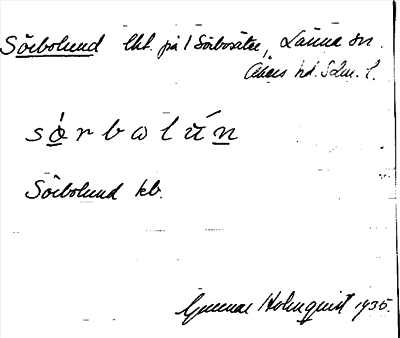 Sörbolund lht. på 1 Sörbosätra, Länna sn.
Åkers hd. Sdm. l.
sø̀rbωlún
Sörbolund kb.
Gunnar Holmquist 1935.